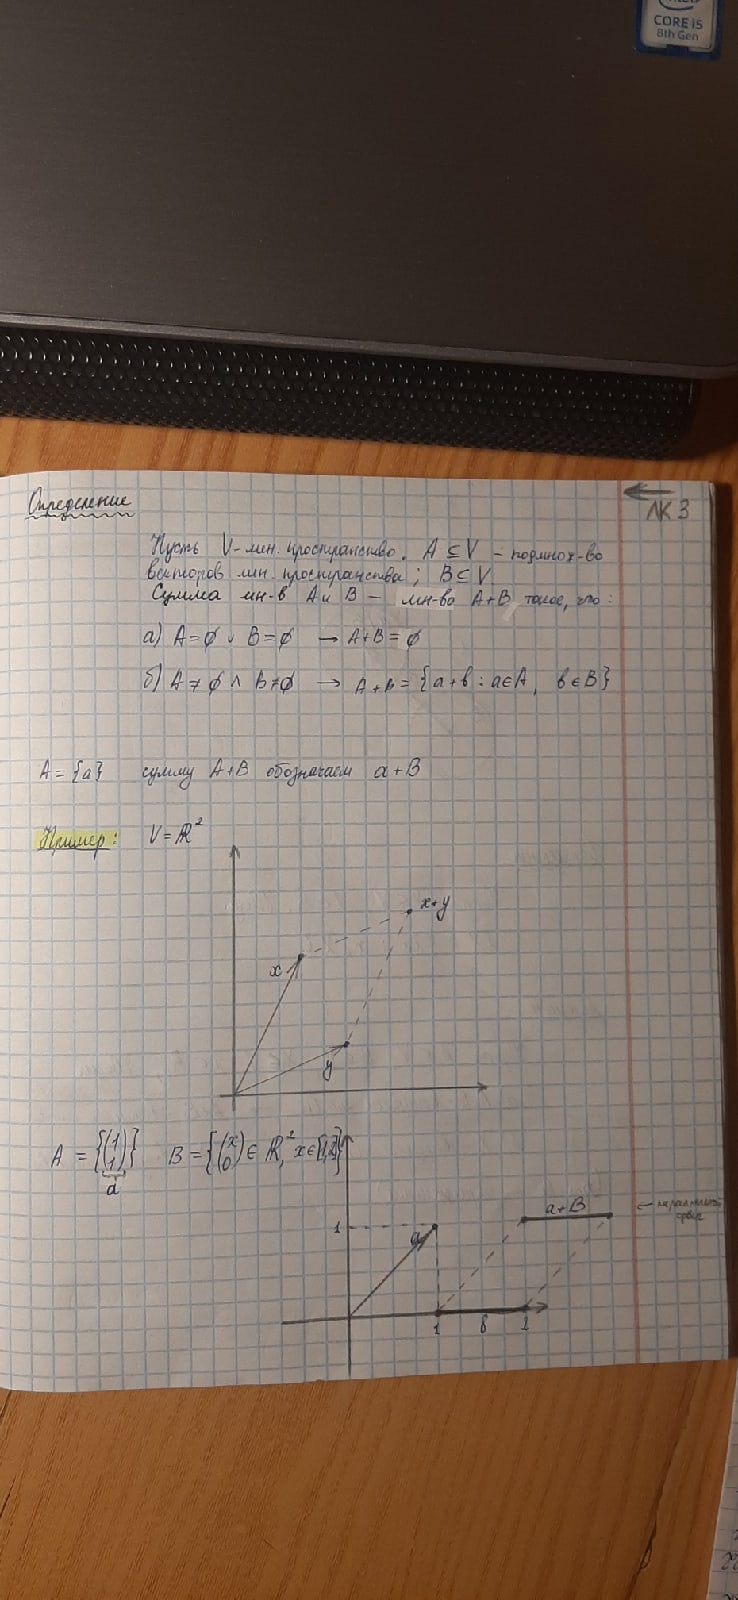 CORE i5
8th Gen
ЛК 3
Определение
Пусть V - лин. пространство. A ⊆ V - подмнож-во
векторов лин. пространства; B ⊆ V.
Сумма мн-в A и B - мн-во A+B такое, что:
а) A = ∅ ∨ B = ∅ → A+B = ∅
б) A ≠ ∅ ∧ B ≠ ∅ → A+B = {a+b : a∈A, b∈B}
A = {a} сумму A+B обозначаем a+B
Пример: V = ℝ²
x+y
x
y
A = {(1 1)} B = {(x 0) ∈ ℝ², x∈[1,2]}
a
a+B
1
a
1 b 2